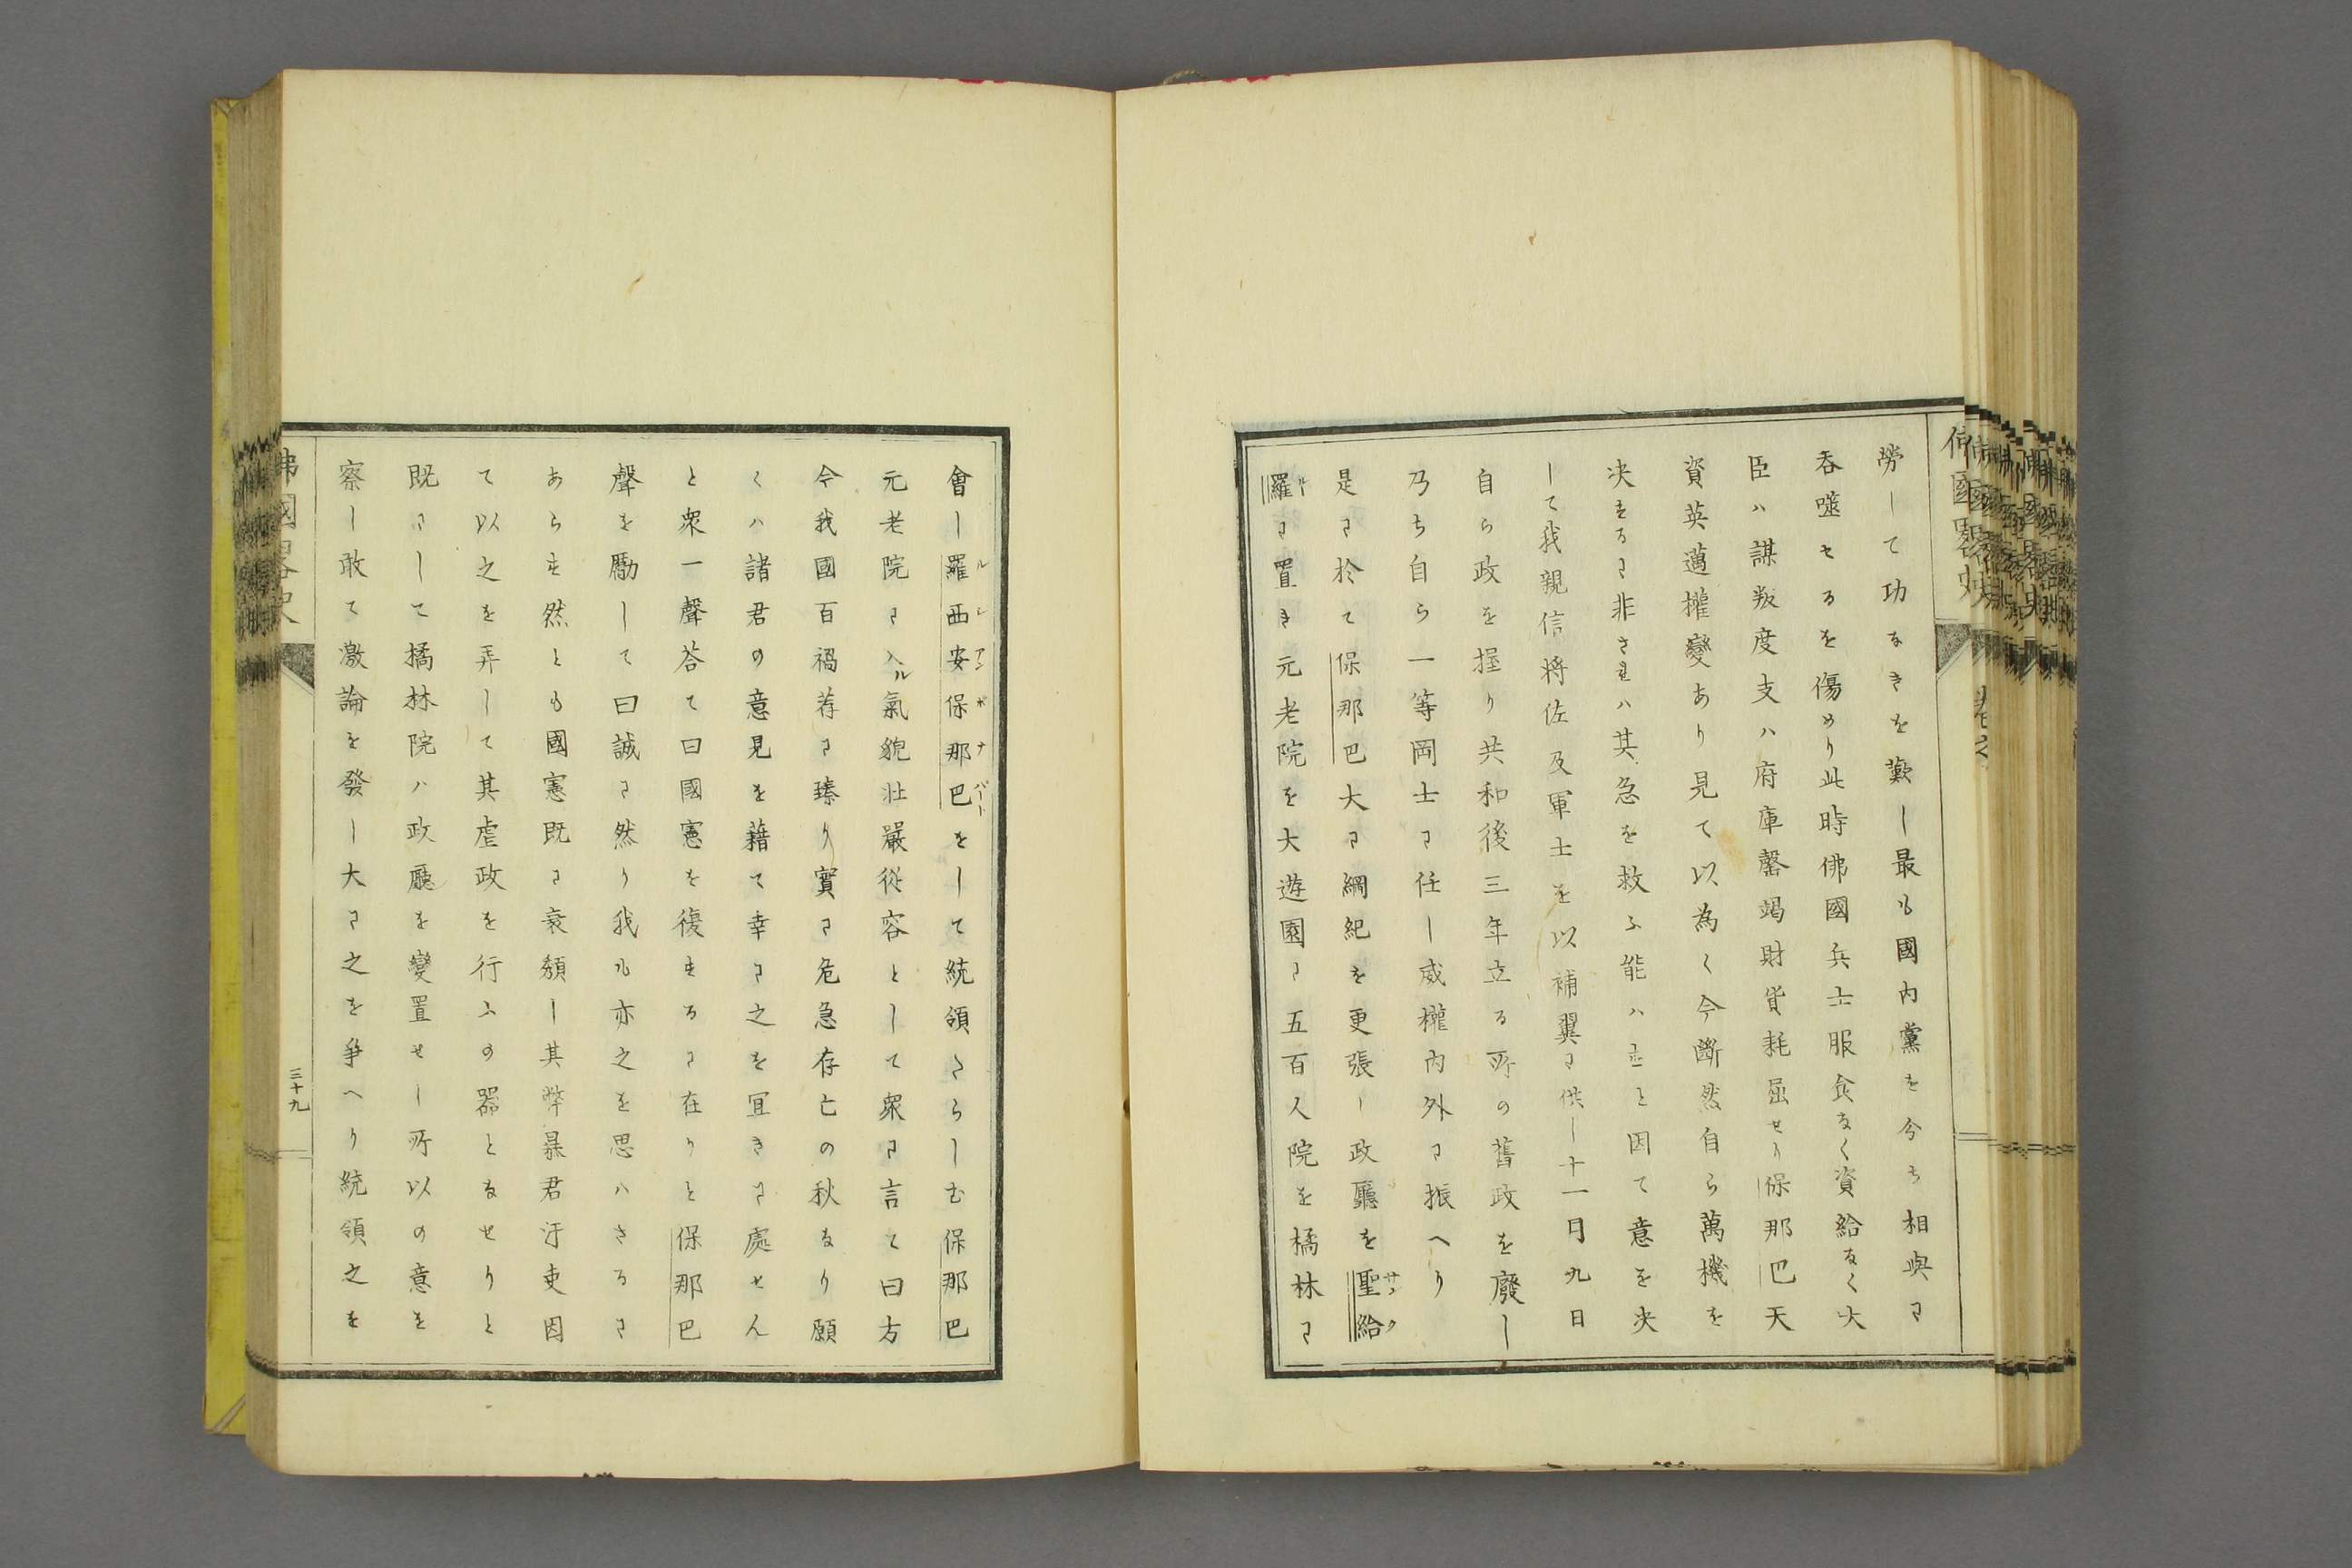 勞して功なきを歎し最も國内黨を分ち相與に
呑噬せるを傷めり此時佛國兵士服食なく資給なく大
臣ハ謀叛度支ハ府庫罄竭財貨耗屈せり保那巴天
資英邁權變あり見て以為く今斷然自ら萬機を
决するに非されハ其急を救ふ能ハすと因て意を决
して我親信將佐及軍士を以補翼に供し十一月九日
自ら政を握り共和後三年立る所の舊政を廢し
乃ち自ら一等岡士に任し威權内外に振へり
是に於て保那巴大に綱紀を更張し政廳を聖給
羅に置き元老院を大遊園に五百人院を橘林に
會し羅西安保那巴をして統領たらしむ保那巴
元老院に入ル氣貌壯嚴從容として衆に言て曰方
今我國百禍荐に臻り實に危急存亡の秋なり願
くハ諸君の意見を藉て幸に之を宜きに處せん
と衆一聲荅て曰國憲を復するに在りと保那巴
聲を勵して曰誠に然り我凡亦之を思ハさるに
あらす然とも國憲既に衰頽し其弊暴君汙吏因
て以之を弄して其虐政を行ふの器となせりと
既にして橘林院ハ政廳を變置せし所以の意を
察し敢て激論を發し大に之を爭へり統領之を
佛國畧史
三十九